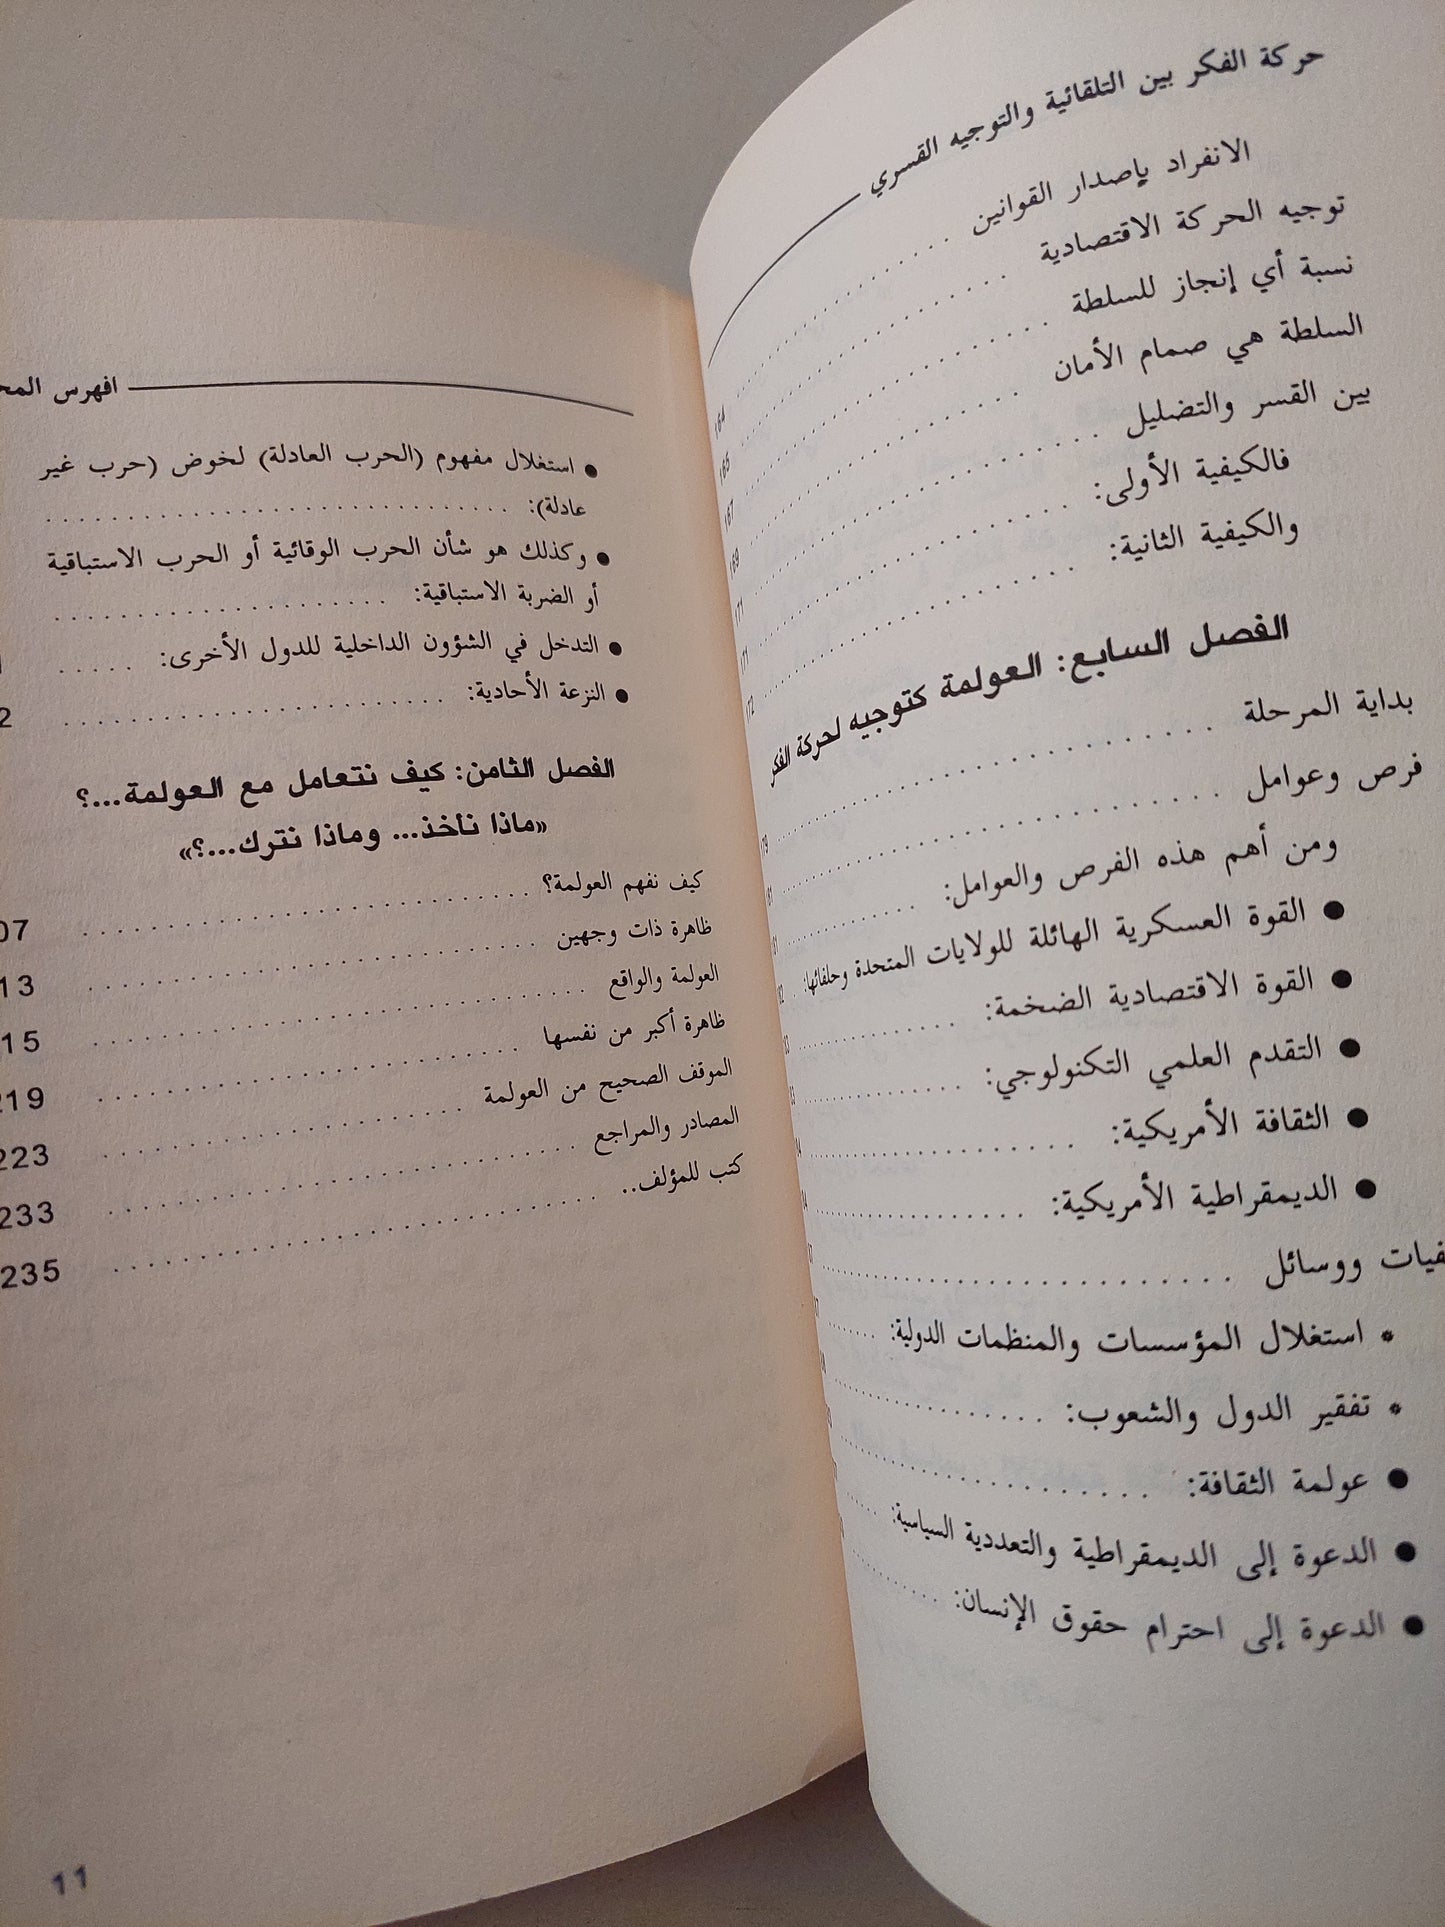 حركة الفكر بين التلقائية والتوجيه القسري
الانفراد بإصدار القوانين 164
توجيه الحركة الاقتصادية 165
نسبة أي إنجاز للسلطة 167
السلطة هي صمام الأمان 169
بين القسر والتضليل 171
فالكيفية الأولى: 171
والكيفية الثانية: 172
الفصل السابع: العولمة كتوجيه لحركة الفكر
بداية المرحلة
فرص وعوامل
ومن أهم هذه الفرص والعوامل:
● القوة العسكرية الهائلة للولايات المتحدة وحلفائها:
● القوة الاقتصادية الضخمة:
● التقدم العلمي التكنولوجي:
● الثقافة الأمريكية:
● الديمقراطية الأمريكية:
ووسائل
* استغلال المؤسسات والمنظمات الدولية:
* تفقير الدول والشعوب:
● عولمة الثقافة:
● الدعوة إلى الديمقراطية والتعددية السياسية:
● الدعوة إلى احترام حقوق الإنسان:
افهرس
● استغلال مفهوم (الحرب العادلة) لخوض (حرب غير
عادلة):
● وكذلك هو شأن الحرب الوقائية أو الحرب الاستباقية
أو الضربة الاستباقية:
● التدخل في الشؤون الداخلية للدول الأخرى:
● النزعة الأحادية:
الفصل الثامن: كيف نتعامل مع العولمة...؟
«ماذا نأخذ... وماذا نترك...؟»
كيف نفهم العولمة؟ 07
ظاهرة ذات وجهين 13
العولمة والواقع 15
ظاهرة أكبر من نفسها 219
الموقف الصحيح من العولمة 223
المصادر والمراجع 233
كتب للمؤلف.. 235
11